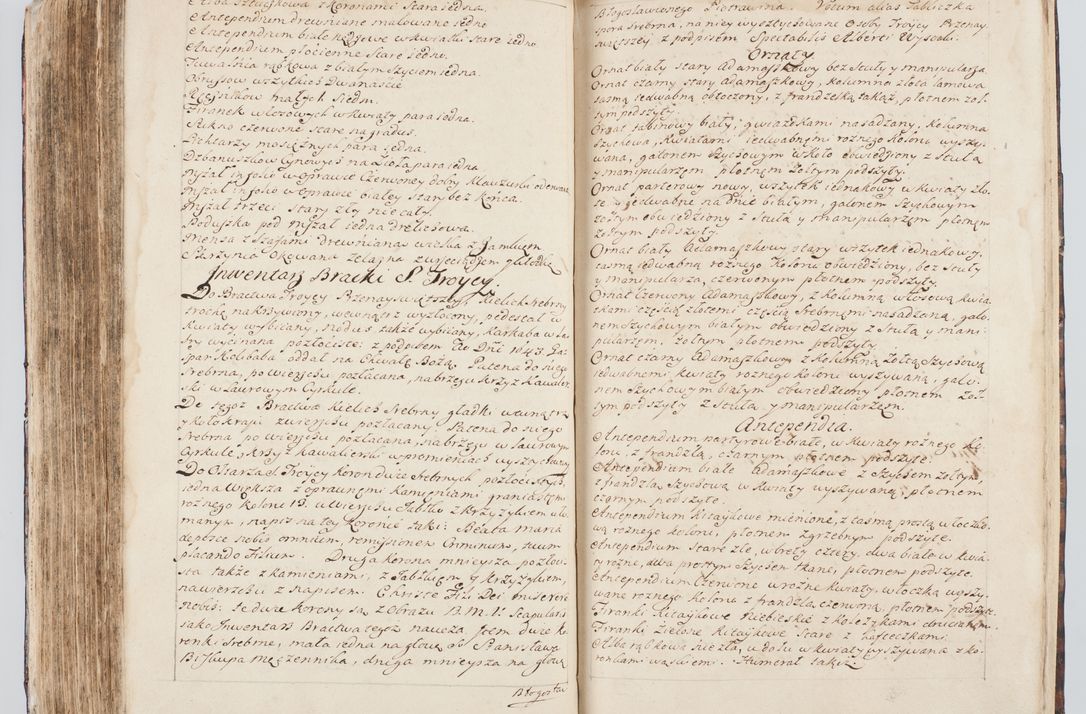 Alba sztuczkowa z koronami stara iedna.
Antependium drewniane malowane iedne
Antependium białe w kwiatki stare iedno
Antependium płocienne stare iedno.
Tuwalnia rąbkowa z białym szyciem iedna.
Obrussow wszytkich Dwanaście
Ręcznikow małych siedm.
Firanek w kwiaty para iedna.
Sukno czerwone stare na gradus.
Lichtarzy mosiężnych para iedna.
Dzbanuszkow Cynowych na Zioła para iedna
Mszał in folio w oprawie Czerwoney dobry Klauzurki oderwane
Mszał in folio w oprawie białey stary bez konca.
Mszał trzeci stary zły niecały.
Poduszka pod Mszał iedna drelichowa.
Mensa z Szafami drewniana wielka z Zamkiem
Skrzynia okowana żelazna z
Inwentarz Bracki S. Troycy.
Do Bractwa Troycy Przenayswiętszey, Kielich Srebrny
trochę nakrzywiony, wewnątrz wyzłocony, pedestał w
kwiaty wybiiany, nodus także wybiiany, karkaba w la-
sry wycinana pozłocista: z podpisem de Dni 1643. Ga-
spar Kolibala oddał na Chwałę Bożą. Patena do niego
Srebrna, po wierzchu pozłacana, na brzegu krzyż kawaler-
ski w Laurowym Cyrkule.
Do tegoż Bractwa kielich srebrny gładki wewnątrz
y około kraju zwierzchu pozłacany. Patena do niego
Srebrna po wierzchu pozłacana, na brzegu w laurowym
Cyrkule, krzyż kawalierski w promieniach wysztychowany
Do Ołtarza S. Troycy koron dwie srebrnych pozłocistych,
iedna większa z oprawnemi kamieniami graniastemi
rożnego koloru 19. u wierzchu Jabłko z krzyżykiem uła-
manym, napis na tey koronie taki: Beata Maria
deposce nobis omnium, remissionem Criminum, tuum
placando Filium. Druga korona mnieysza pozłoci-
sta także z kamieniami, z Jabłkiem y krzyżykiem,
na wierzchu z napisem. Christe Fili Dei miserere
nobis. Te dwie korony są z Obrazu B.M.V. Scapularis
iako Inwentarz Bractwa tegoż naucza. Item dwie ko-
ronki srebrne, mała iedna na głową S. Stanisława
Biskupa Męczennika, druga mnieysza na głową
Błogosław
Błogosławionego Piotrowina. Votum alias Tabliczka
spora srebrna, na niey wysztychowane Osoby Troycy Przenay-
świętszey z podpisem Spectabilis Alberti Wysocki.
Ornaty
Ornat biały stary adamaszkowy bez stuły y manipularza
Ornat czarny stary Adamaszkowy, kolumna złotą lamową
tasmą iedwabną obtoczony, z frandzelką takąż, płotnem żoł-
tym podszyty.
Ornat tabinowy biały, gwiazdkami nasadzany, kolumna
szychowa, kwiatami iedwabnemi rożnego koloru wyszy-
wana, galonem szychowym wkoło obwiedziony z stułą
y manipularzem, płotnem żołtym podszyty.
Ornat parterowy nowy, wszytek iednakowy w kwiaty zło-
te y iedwabne na dnie białym, galonem szychowym
żołtym obwiedziony z stułą y manipularzem płotnem
żołtym podszyty.
Ornat biały Adamaszkowy stary wszytek iednakowy,
tasmą iedwabną rożnego koloru obwiedziony, bez stuły
y manipularza, czerwonym płotnem podszyty.
Ornat czerwony Adamaszkowy, z kolumną włosową kwia-
tkami częścią złotemi częścią srebrnemi nasadzaną, galo-
nem szychowym białym obwiedziony z stułą y mani-
pularzem, żołtym płotnem podszyty.
Ornat czarny Adamaszkowy z kolumną żołtą szychową
iedwabnemi kwiaty rożnego koloru wyszywaną, galo-
nem szychowym białym obwiedziony płotnem żoł-
tym podszyty z stułą y manipularzem.
Antependia.
Antependium partyrowe białe, w kwiaty rożnego ko-
loru, z frandzlą, czarnym płotnem podszyte.
Antependium białe Adamaszkowe z szychem żołtym,
z frandzlą szychową w kwiaty wyszywaną, płotnem
czarnym podszyte.
Antependium kitaykowe mienione, z tasmą prostą włoczko-
wą rożnego koloru, płotnem zgrzebnym podszyte.
Antependium stare złe, w bryty czery, dwa biało w kwia-
ty rożne, dwa prostym szychem tkane, płotnem podszyte.
Antependium Czerwone w rożne kwiaty, włoczką wyszy-
wane rożnego koloru z frandzlą czerwoną, płotnem podszyte.
Firanki kitaykowe niebieskie z kołeczkami drucianemi.
Firanki Zielone kitaykowe stare z hafteczkami.
Alba rąbkowa nie zła, u dołu w kwiaty wyszywana z ko-
ronkami wąskiemi. Humerał takiż.